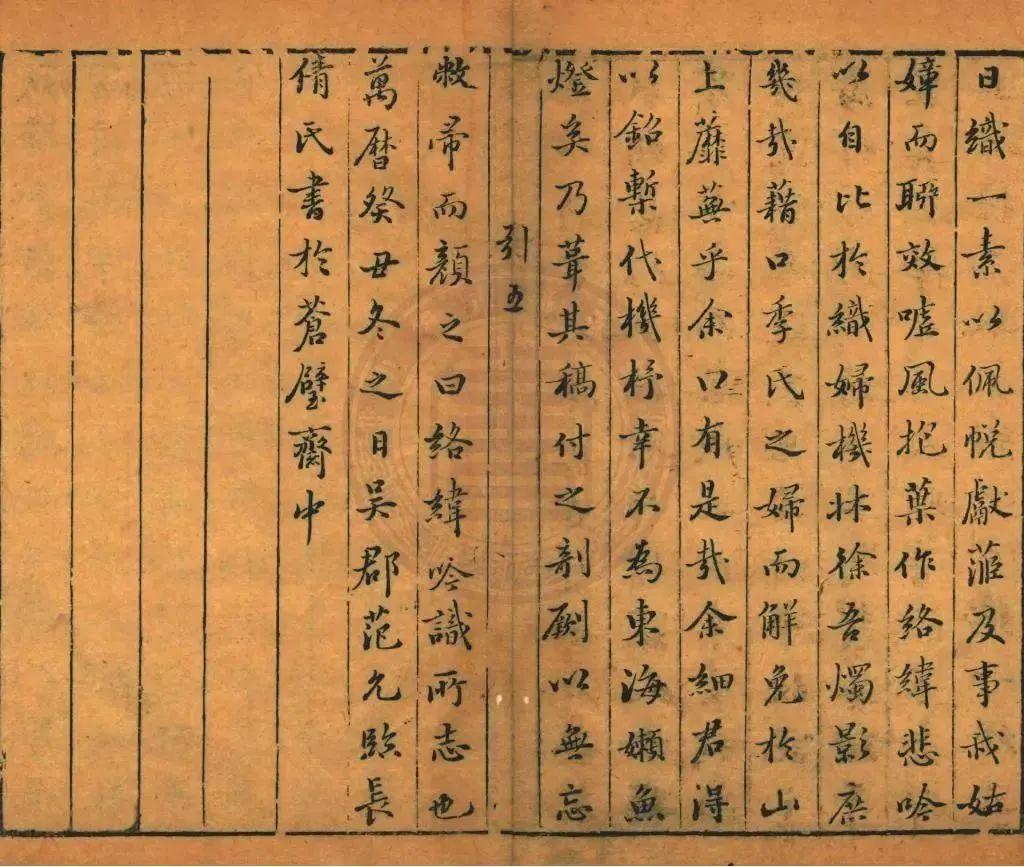 日織一素以佩帨獻茝及事我姑
嫜而聊效嘘風抱葉作絡緯悲吟
以自比於織婦機牀徐吾燭影庶
幾哉藉口季氏之婦而解免於山
上蘼蕪乎余口有是哉余細君得
以鉛槧代機杼幸不為東海嬾魚
燈矣乃葺其稿付之剞劂以無忘
引五
敝帚而顏之曰絡緯吟識所志也
萬曆癸丑冬之日吳郡范允臨長
倩氏書於蒼璧齋中